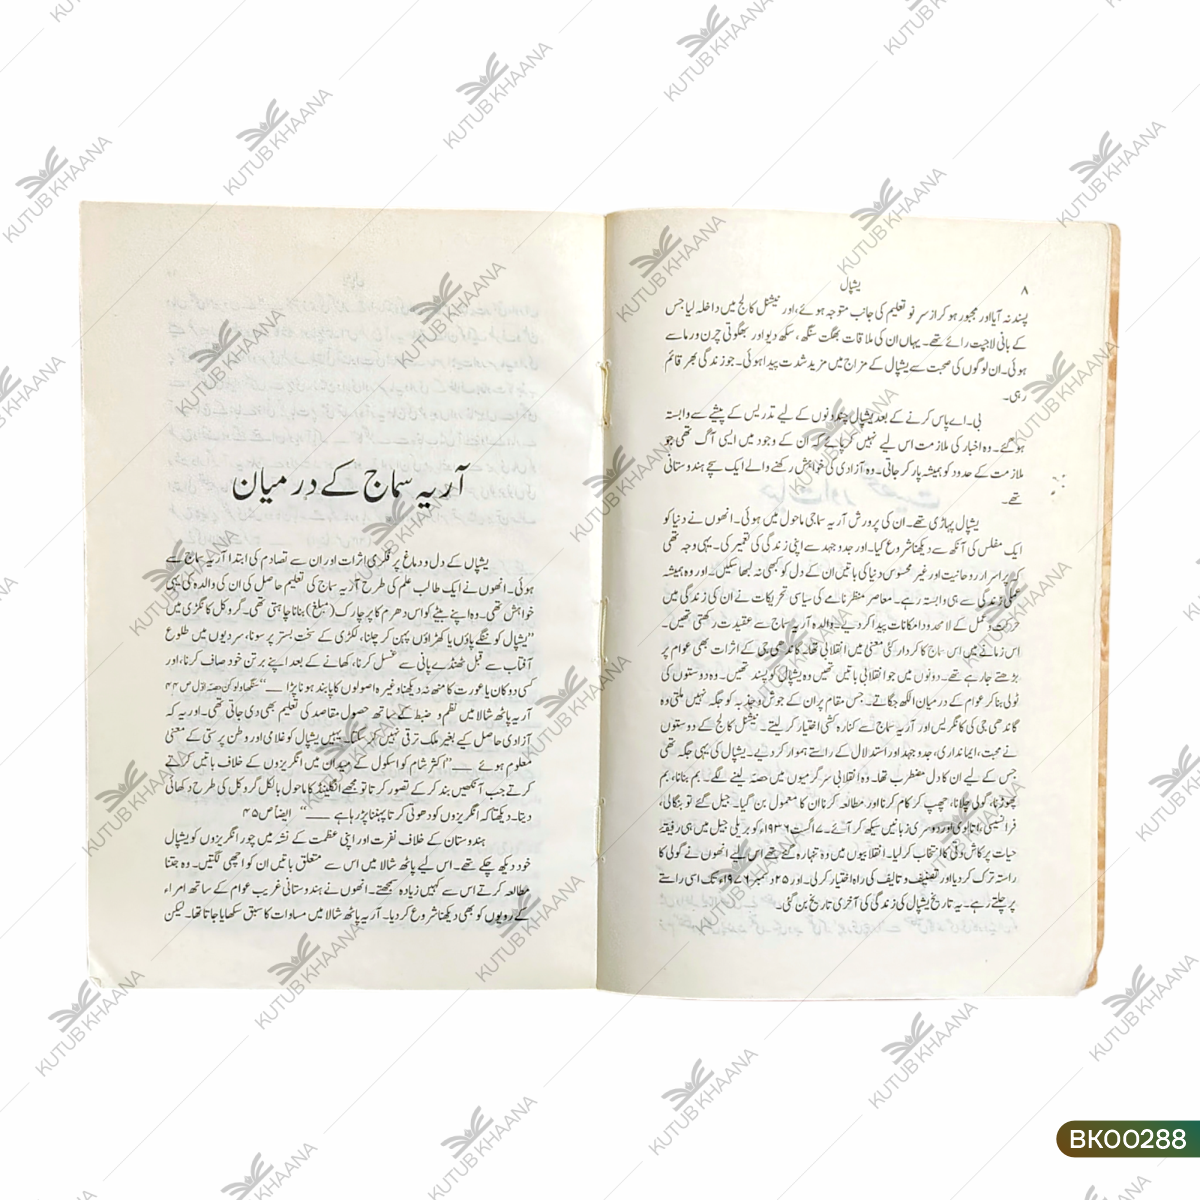 ۸
یشپال
پسند نہ آیا اور مجبور ہو کر از سرِ نو تعلیم کی جانب متوجہ ہوئے، اور نیشنل کالج میں داخلہ لیا جس
کے بانی لاجپت رائے تھے۔ یہاں ان کی ملاقات بھگت سنگھ، سکھ دیو اور بھگوتی چرن ورما سے
ہوئی۔ ان لوگوں کی صحبت سے یشپال کے مزاج میں مزید شدت پیدا ہوئی۔ جو زندگی بھر قائم
رہی۔
بی۔اے پاس کرنے کے بعد یشپال چند دنوں کے لیے تدریس کے پیشے سے وابستہ
ہو گئے۔ وہ اخبار کی ملازمت اس لیے نہیں کر پائے کہ ان کے وجود میں ایسی آگ تھی جو
ملازمت کے حدود کو ہمیشہ پار کر جاتی۔ وہ آزادی کی خواہش رکھنے والے ایک سچے ہندوستانی
تھے۔
یشپال پہاڑی تھے۔ ان کی پرورش آریہ سماجی ماحول میں ہوئی۔ انھوں نے دنیا کو
ایک مفلس کی آنکھ سے دیکھنا شروع کیا۔ اور جدوجہد سے اپنی زندگی کی تعمیر کی۔ یہی وجہ تھی
کہ پراسرار روحانیت اور غیر محسوس دنیا کی باتیں ان کے دل کو کبھی نہ لبھا سکیں۔ اور وہ ہمیشہ
عملی زندگی سے ہی وابستہ رہے۔ معاصر منظرنامے کی سیاسی تحریکات نے ان کی زندگی میں
حرکت و عمل کے لامحدود امکانات پیدا کر دیے۔ والدہ آریہ سماج سے عقیدت رکھتی تھیں۔
اس زمانے میں اس سماج کا کردار کئی معنی میں انقلابی تھا۔ گاندھی جی کے اثرات بھی عوام پر
بڑھتے جا رہے تھے۔ دونوں میں جو انقلابی باتیں تھیں وہ یشپال کو پسند تھیں۔ وہ دوستوں کی
ٹولی بنا کر عوام کے درمیان الکھ جگاتے۔ جس مقام پر ان کے جوش و جذبہ کو جگہ نہیں ملتی وہ
گاندھی جی کی کانگریس اور آریہ سماج سے کنارہ کشی اختیار کر لیتے۔ نیشنل کالج کے دوستوں
نے محبت، ایمانداری، جدوجہد اور استدلال کے راستے ہموار کر دیے۔ یشپال کی یہی جگہ تھی
جس کے لیے ان کا دل مضطرب تھا۔ وہ انقلابی سرگرمیوں میں حصہ لینے لگے۔ بم بنانا، بم
پھوڑنا، گولی چلانا، چھپ کر کام کرنا اور مطالعہ کرنا ان کا معمول بن گیا۔ جیل گئے تو بنگالی،
فرانسیسی، اٹالوی اور دوسری زبانیں سیکھ کر آئے۔ ۷ اگست ۱۹۳۶ء کو بریلی جیل میں ہی رفیقۂ
حیات پرکاش وتی کا انتخاب کر لیا۔ انقلابیوں میں وہ تنہا رہ گئے تھے اس لیے انھوں نے گولی کا
راستہ ترک کر دیا اور تصنیف و تالیف کی راہ اختیار کر لی۔ اور ۲۵ دسمبر ۱۹۷۶ء تک اسی راستے
پر چلتے رہے۔ یہ تاریخ یشپال کی زندگی کی آخری تاریخ بن گئی۔
آریہ سماج کے درمیان
یشپال کے دل و دماغ پر فکری اثرات اور ان سے تصادم کی ابتدا آریہ سماج سے
ہوئی۔ انھوں نے ایک طالب علم کی طرح آریہ سماج کی تعلیم حاصل کی ان کی والدہ کی یہی
خواہش تھی۔ وہ اپنے بیٹے کو اس دھرم کا پرچارک (مبلغ) بنانا چاہتی تھی۔ گروکل کانگڑی میں
”یشپال کو ننگے پاؤں یا کھڑاؤں پہن کر چلنا، لکڑی کے سخت بستر پر سونا، سردیوں میں طلوع
آفتاب سے قبل ٹھنڈے پانی سے غسل کرنا، کھانے کے بعد اپنے برتن خود صاف کرنا، اور
کسی دوکان یا عورت کا منھ نہ دیکھنا وغیرہ اصولوں کا پابند ہونا پڑا —“ سنگھاولوکن حصہ اوّل ص ۴۴
آریہ پاٹھ شالا میں نظم و ضبط کے ساتھ حصول مقاصد کی تعلیم بھی دی جاتی تھی۔ اور یہ کہ
آزادی حاصل کیے بغیر ملک ترقی نہیں کر سکتا۔ یہیں یشپال کو غلامی اور وطن پرستی کے معنی
معلوم ہوئے — ”اکثر شام کو اسکول کے میدان میں انگریزوں کے خلاف باتیں کرتے
کرتے جب آنکھیں بند کر کے تصور کرتا تو مجھے انگلینڈ کا ماحول بالکل گروکل کی طرح دکھائی
دیتا۔ دیکھتا کہ انگریزوں کو دھوتی کرتا پہننا پڑ رہا ہے —“ ایضاً ص ۴۵
ہندوستان کے خلاف نفرت اور اپنی عظمت کے نشہ میں چور انگریزوں کو یشپال
خود دیکھ چکے تھے۔ اس لیے پاٹھ شالا میں اس سے متعلق باتیں ان کو اچھی لگتیں۔ وہ جتنا
مطالعہ کرتے اس سے کہیں زیادہ سمجھتے۔ انھوں نے ہندوستانی غریب عوام کے ساتھ امراء
کے رویوں کو بھی دیکھنا شروع کر دیا۔ آریہ پاٹھ شالا میں مساوات کا سبق سکھایا جاتا تھا۔ لیکن
KUTUB KHAANA
BK00288